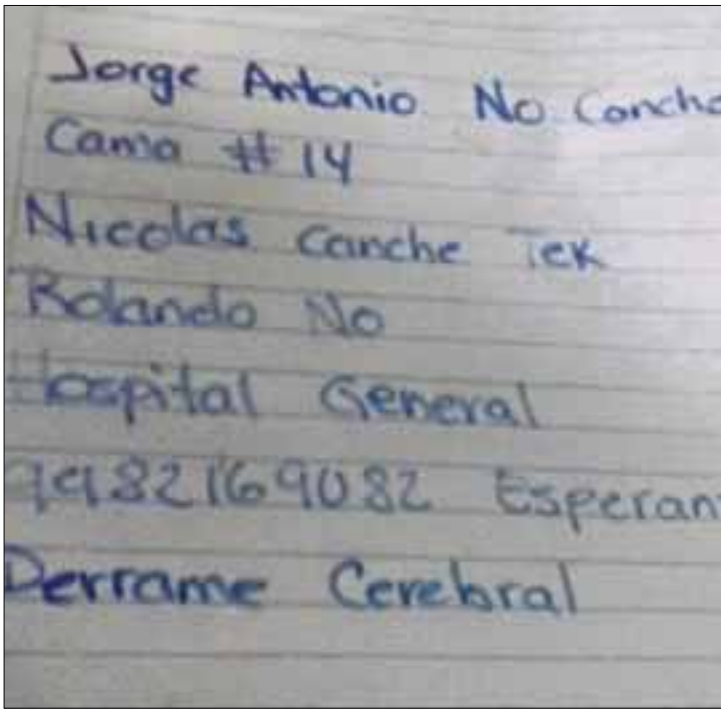 Jorge Antonio No Canche
Cama # 14
Nicolas Canche Tek
Rolando No
Hospital General
9982169082 Esperan
Derrame Cerebral